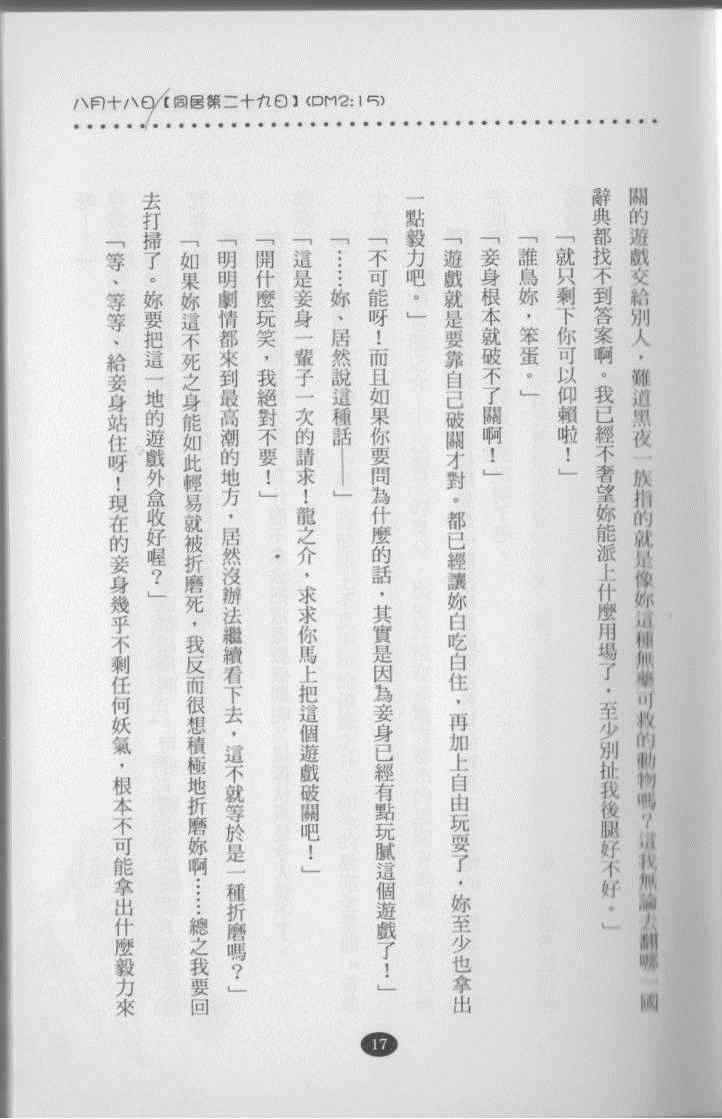 八月十八日【同居第二十九日】(DM2:15)
關的遊戲交給別人，難道黑夜一族指的就是像妳這種無藥可救的動物嗎？這我無論去翻哪一國
辭典都找不到答案啊。我已經不奢望妳能派上什麼用場了，至少別扯我後腿好不好。」
「就只剩下你可以仰賴啦！」
「誰鳥妳，笨蛋。」
「妾身根本就破不了關啊！」
「遊戲就是要靠自己破關才對。都已經讓妳白吃白住，再加上自由玩耍了，妳至少也拿出
一點毅力吧。」
「不可能呀！而且如果你要問為什麼的話，其實是因為妾身已經有點玩膩這個遊戲了！」
「……妳、居然說這種話——」
「這是妾身一輩子一次的請求！龍之介，求求你馬上把這個遊戲破關吧！」
「開什麼玩笑，我絕對不要！」
「明明劇情都來到最高潮的地方，居然沒辦法繼續看下去，這不就等於是一種折磨嗎？」
「如果妳這不死之身能如此輕易就被折磨死，我反而很想積極地折磨妳啊……總之我要回
去打掃了。妳要把這一地的遊戲外盒收好喔？」
「等、等等、給妾身站住呀！現在的妾身幾乎不剩任何妖氣，根本不可能拿出什麼毅力來
17